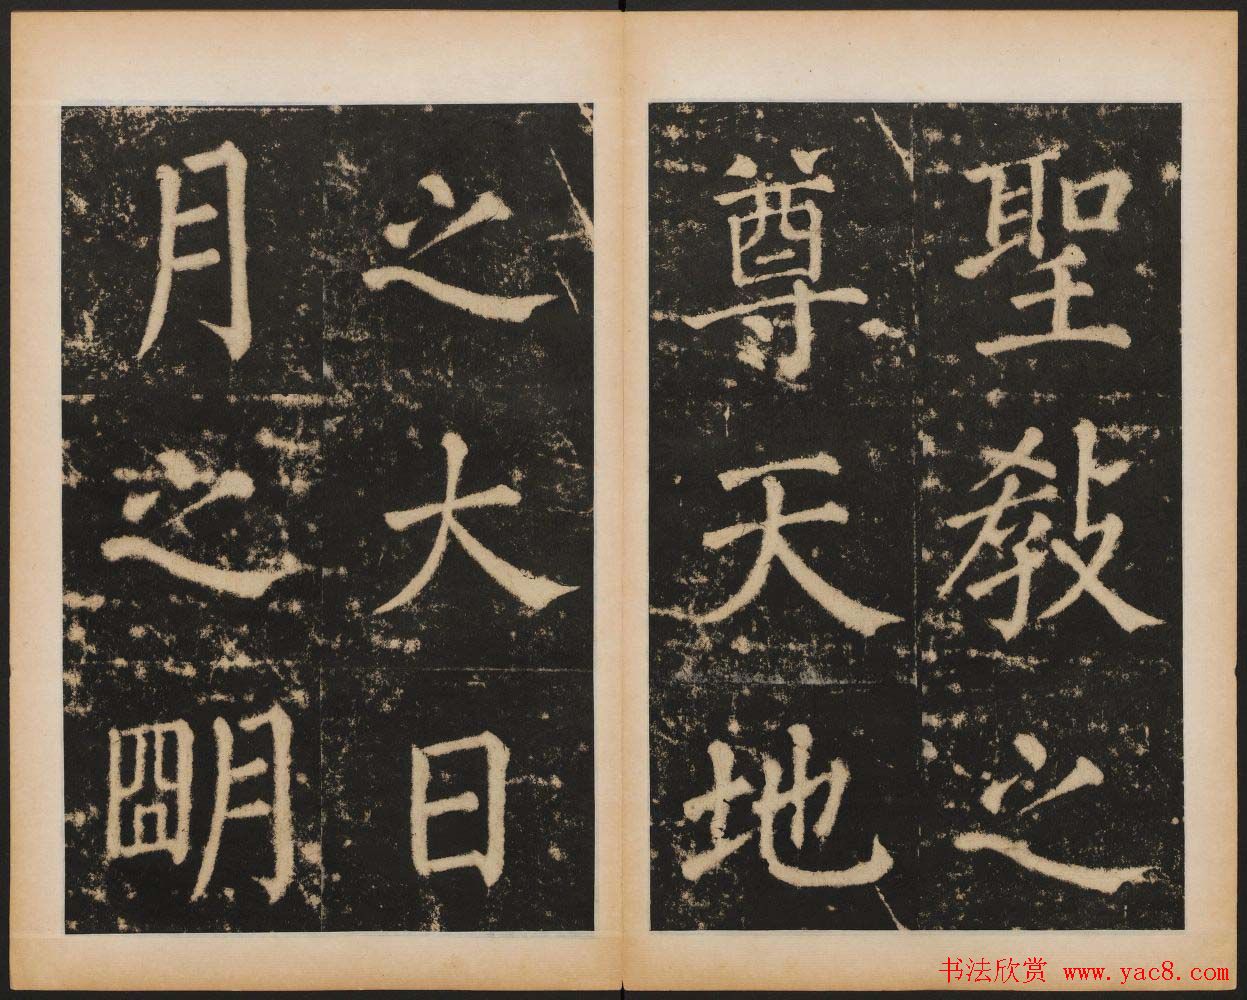 聖教之
尊天地
之大日
月之朙
书法欣赏 www.yac8.com